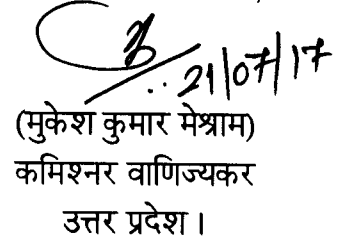 21/07/17
(मुकेश कुमार मेश्राम)
कमिश्नर वाणिज्यकर
उत्तर प्रदेश।